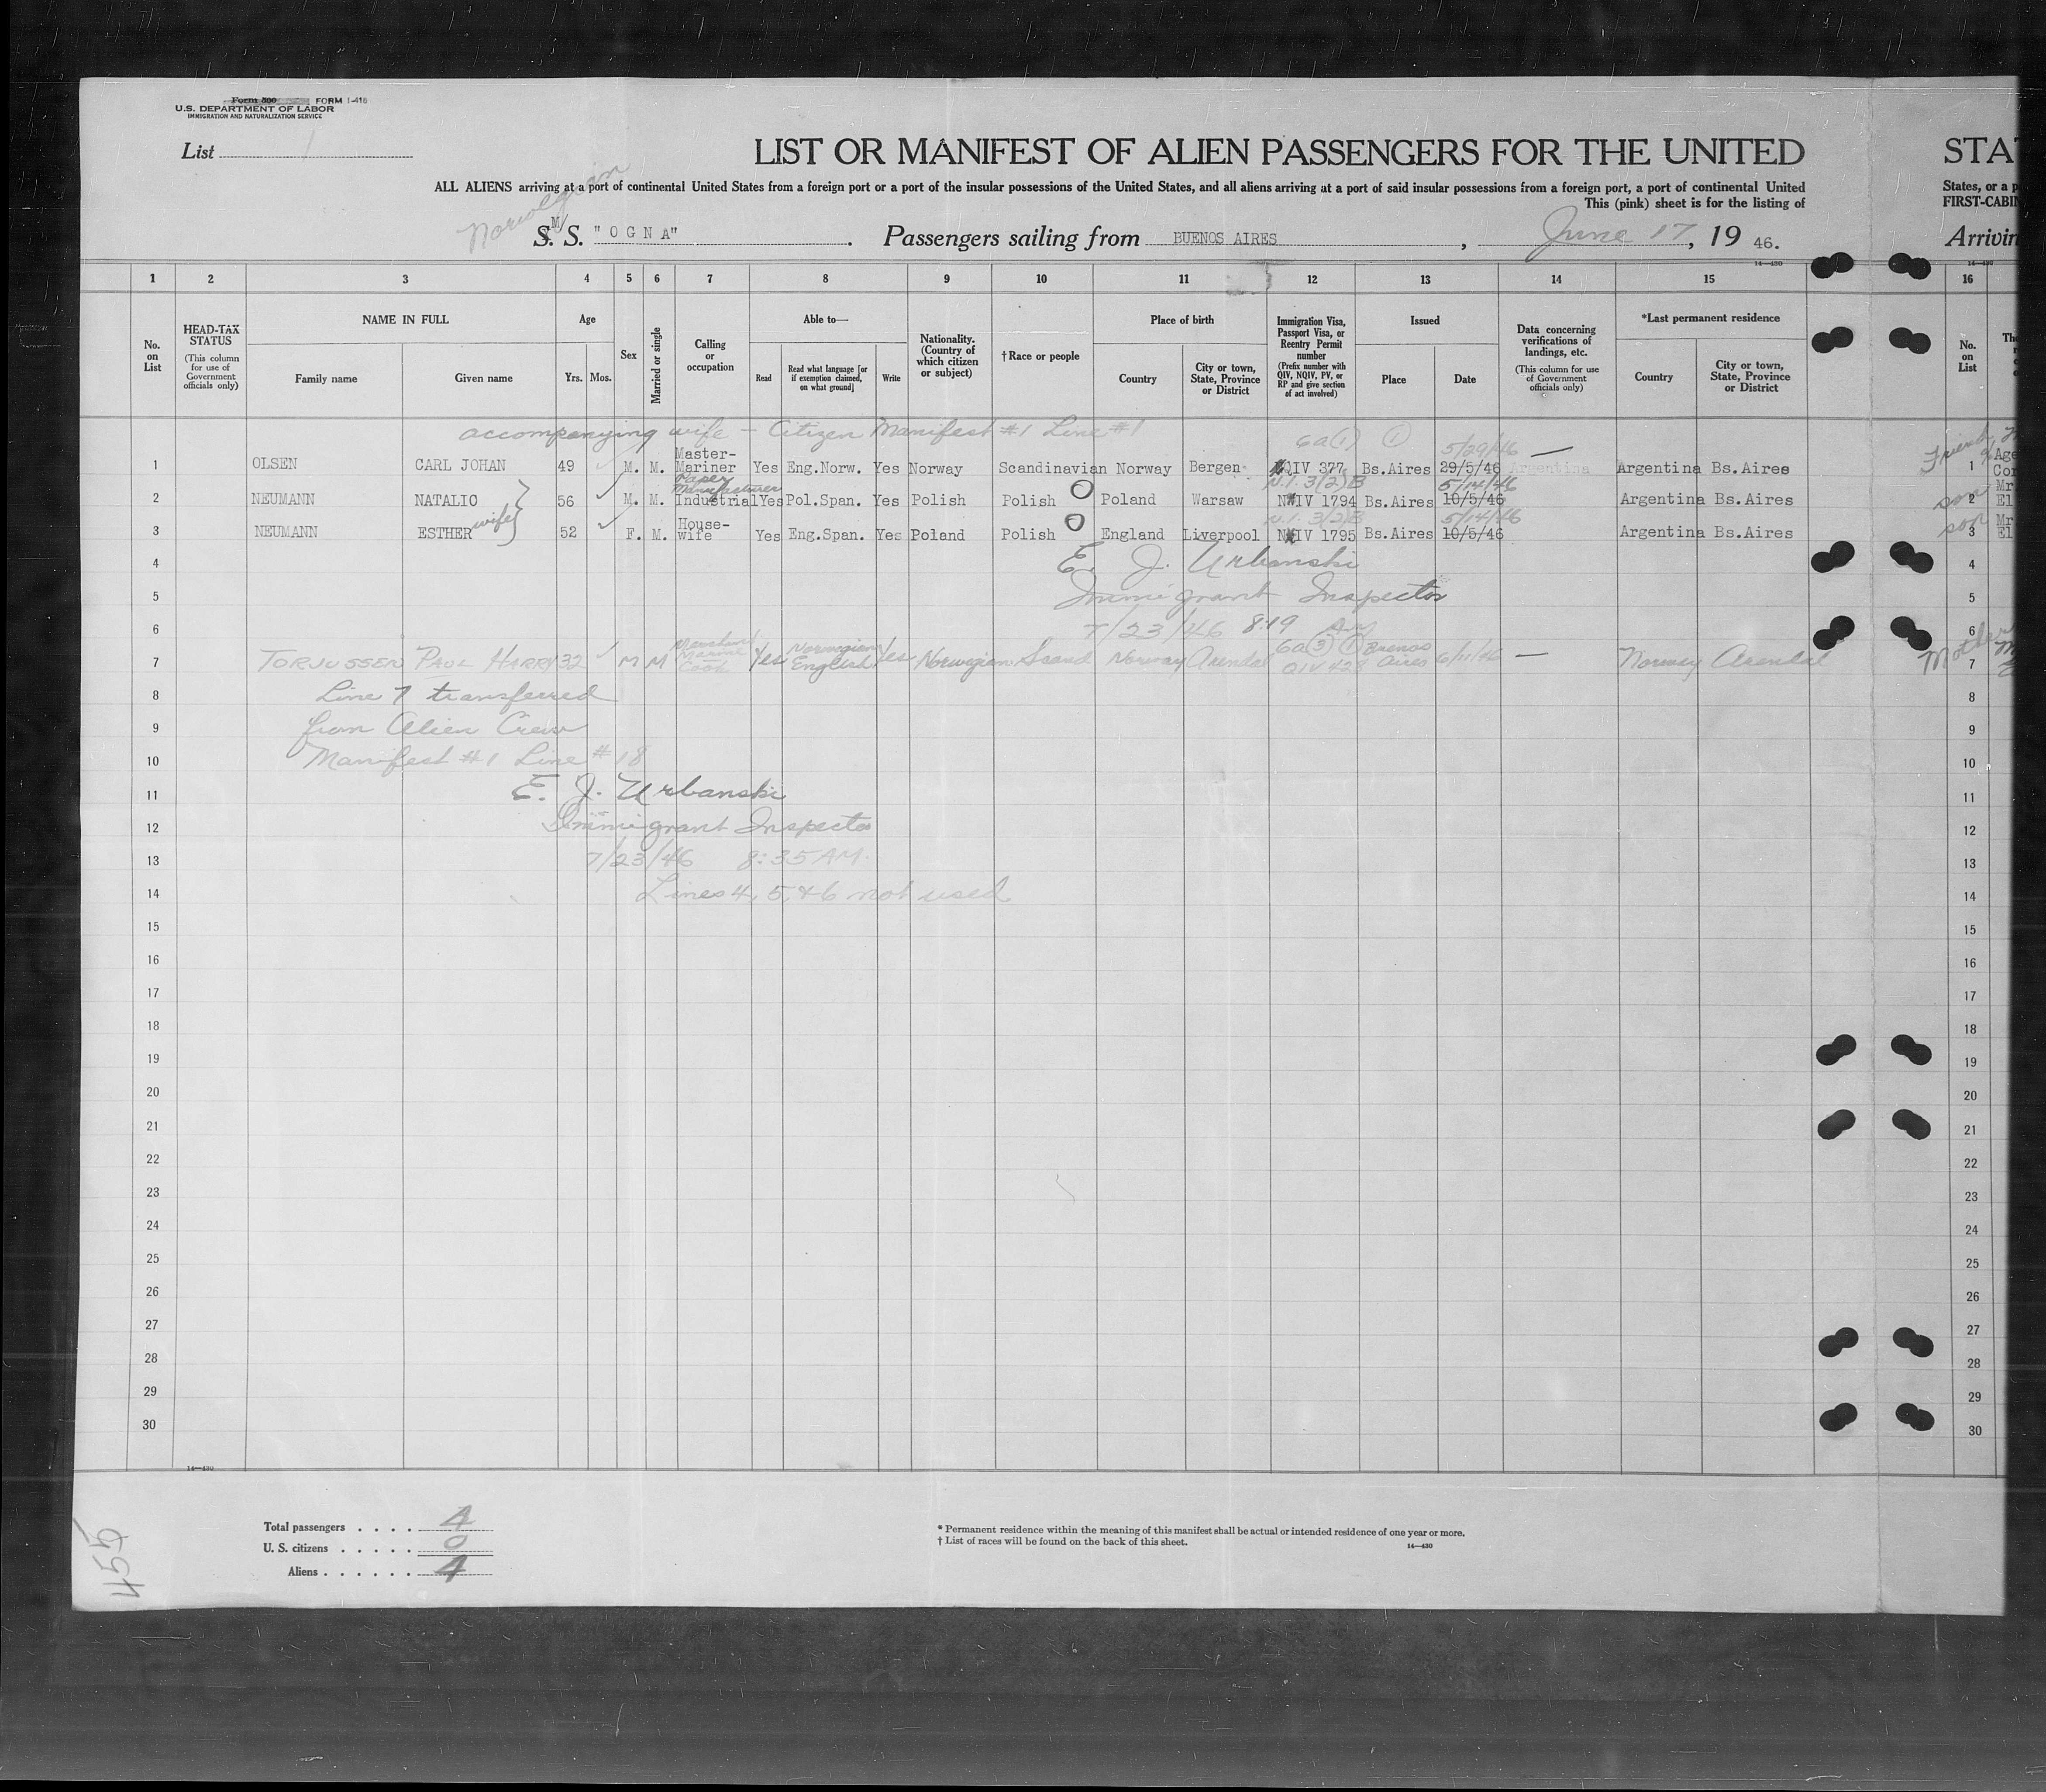 Form 500 FORM I-416
U.S. DEPARTMENT OF LABOR
IMMIGRATION AND NATURALIZATION SERVICE
List 1
LIST OR MANIFEST OF ALIEN PASSENGERS FOR THE UNITED
STA
ALL ALIENS arriving at a port of continental United States from a foreign port or a port of the insular possessions of the United States, and all aliens arriving at a port of said insular possessions from a foreign port, a port of continental United
States, or a p
This (pink) sheet is for the listing of
FIRST-CABIN
Norwegian
S. M S. "OGNA". Passengers sailing from BUENOS AIRES, June 17, 19 46.
Arrivin
14—430
1 2 3 4 5 6 7 8 9 10 11 12 13 14 15 16
No. on List
HEAD-TAX STATUS (This column for use of Government officials only)
NAME IN FULL
Family name
Given name
Age
Yrs. Mos.
Sex
Married or single
Calling or occupation
Able to—
Read
Read what language [or if exemption claimed, on what ground]
Write
Nationality. (Country of which citizen or subject)
†Race or people
Place of birth
Country
City or town, State, Province or District
Immigration Visa, Passport Visa, or Reentry Permit number (Prefix number with QIV, NQIV, PV, or RP and give section of act involved)
Issued
Place
Date
Data concerning verifications of landings, etc. (This column for use of Government officials only)
*Last permanent residence
Country
City or town, State, Province or District
No. on List
accompanying wife — Citizen Manifest #1 Line #1
6a(1) (1) 5/29/46 —
1 OLSEN CARL JOHAN 49 M. M. Master-Mariner Yes Eng.Norw. Yes Norway Scandinavian Norway Bergen QIV 377 Bs.Aires 29/5/46 Argentina Argentina Bs.Aires 1
Paper Manufacturer N.I. 3(2)B 5/14/46
2 NEUMANN NATALIO 56 M. M. Industrial Yes Pol.Span. Yes Polish Polish Poland Warsaw NIV 1794 Bs.Aires 10/5/46 Argentina Bs.Aires son 2
N.I. 3(2)B 5/14/46
3 NEUMANN ESTHER wife 52 F. M. House-wife Yes Eng.Span. Yes Poland Polish England Liverpool NIV 1795 Bs.Aires 10/5/46 Argentina Bs.Aires son 3
4 E. J. Urbanski 4
5 Immigrant Inspector 5
6 7/23/46 8:19 AM 6
7 TORJUSSEN PAUL HARRY 32 M M Merchant Marine Cook Yes Norwegian English Yes Norwegian Scand Norway Arendal 6a(3) (1) QIV 428 Buenos Aires 6/11/46 — Norway Arendal Mother 7
8 Line 7 transferred 8
9 from Alien Crew 9
10 Manifest #1 Line #18 10
11 E. J. Urbanski 11
12 Immigrant Inspector 12
13 7/23/46 8:35 AM. 13
14 Lines 4, 5, & 6 not used 14
15 15
16 16
17 17
18 18
19 19
20 20
21 21
22 22
23 23
24 24
25 25
26 26
27 27
28 28
29 29
30 30
14—430
Total passengers . . . . 4
U. S. citizens . . . . . 0
Aliens . . . . . . 4
* Permanent residence within the meaning of this manifest shall be actual or intended residence of one year or more.
† List of races will be found on the back of this sheet.
14—430
455